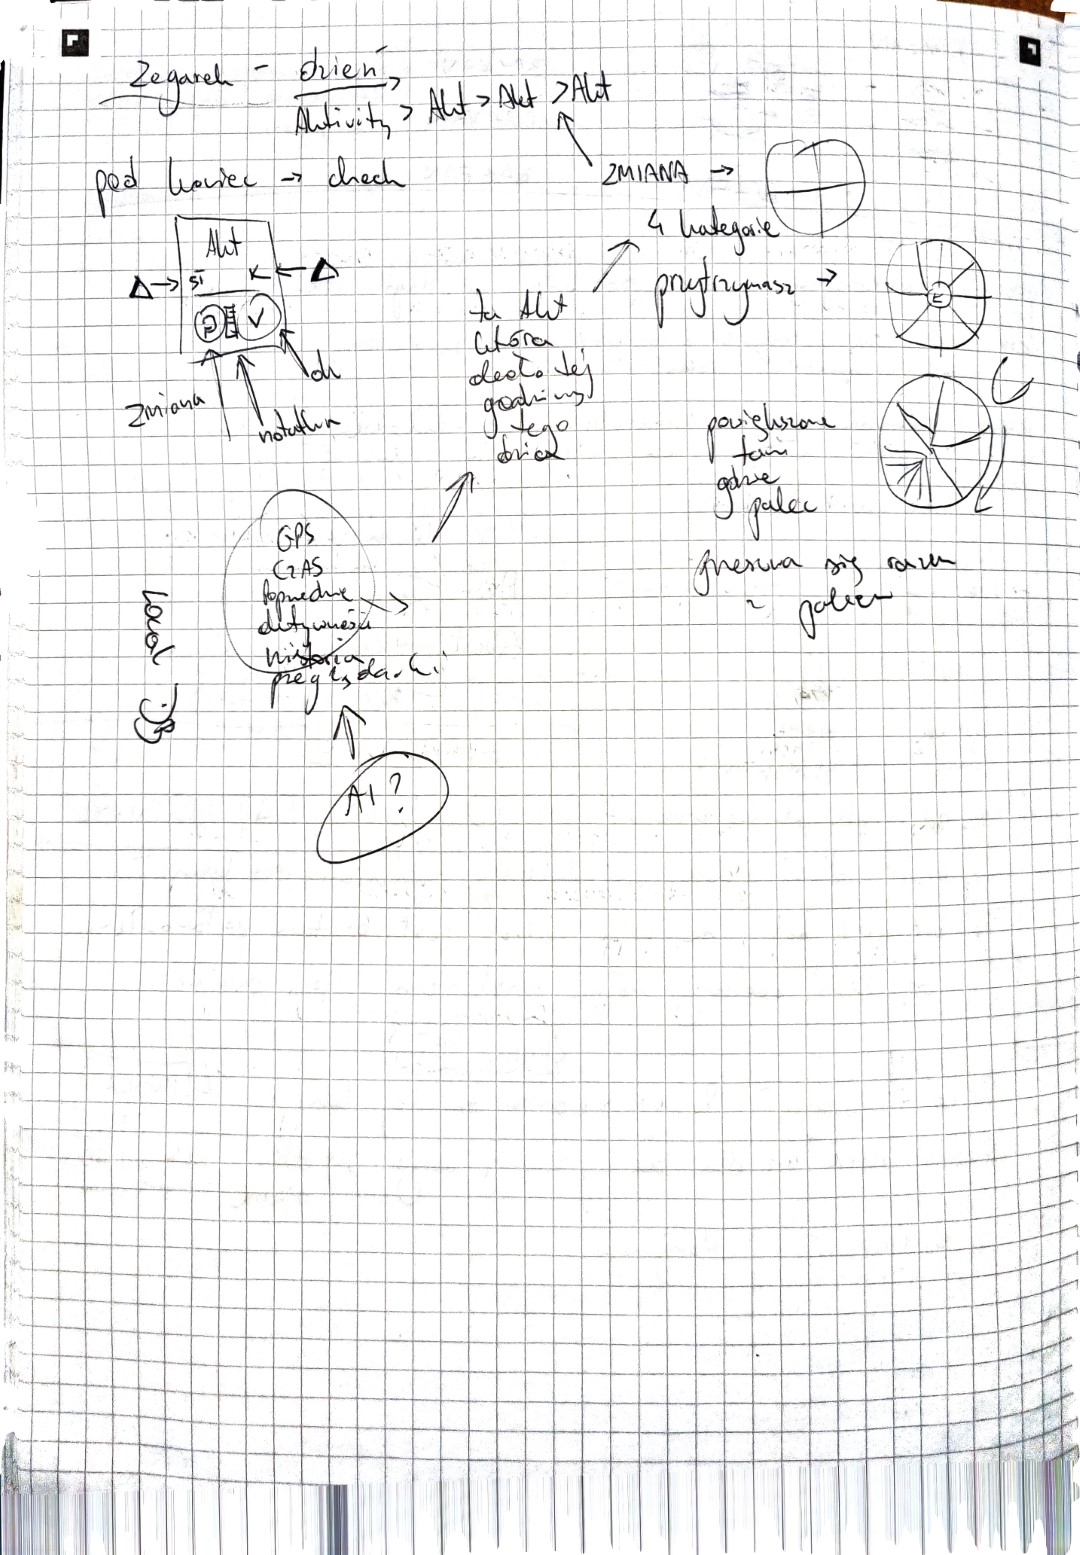 Zegarek - dzień
Aktivity > Akt > Akt > Akt
pod koniec → check
ZMIANA →
4 kategorie
przytrzymasz →
E
Akt
ST K
zmiana
notatka
ok
ta Akt
która
około tej
godziny
tego
dnia
powiększone
tam
gdzie
palec
przesuwa się razem
z palcem
GPS
CZAS
Poprzednie
aktywności
historia
przeglądarki
Local
AI?